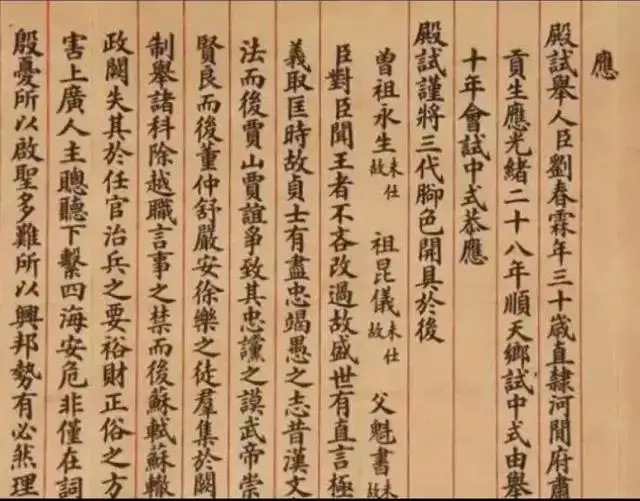 應
殿試舉人臣劉春霖年三十歲直隸河間府肅
貢生應光緒二十八年順天鄉試中式由舉
十年會試中式恭應
殿試謹將三代腳色開具於後
曾祖永生未仕故 祖昆儀未仕故 父魁書未故
臣對臣聞王者不吝改過故盛世有直言極
義取匡時故貞士有盡忠竭愚之志昔漢文
法而後賈山賈誼爭致其忠讜之謨武帝崇
賢良而後董仲舒嚴安徐樂之徒羣集於闕
制舉諸科除越職言事之禁而後蘇軾蘇轍
政闕失其於任官治兵之要裕財正俗之方
害上廣人主聰聽下繫四海安危非僅在詞
殷憂所以啟聖多難所以興邦勢有必然理